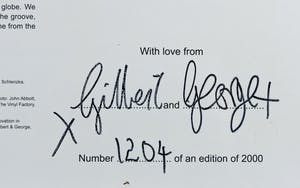 globe. We
the groove,
ne from the
Schlenzka.
oto: John Abbott,
The Vinyl Factory.
ovation in
bert & George.
With love from
X Gilbert and George x
Number 1204 of an edition of 2000